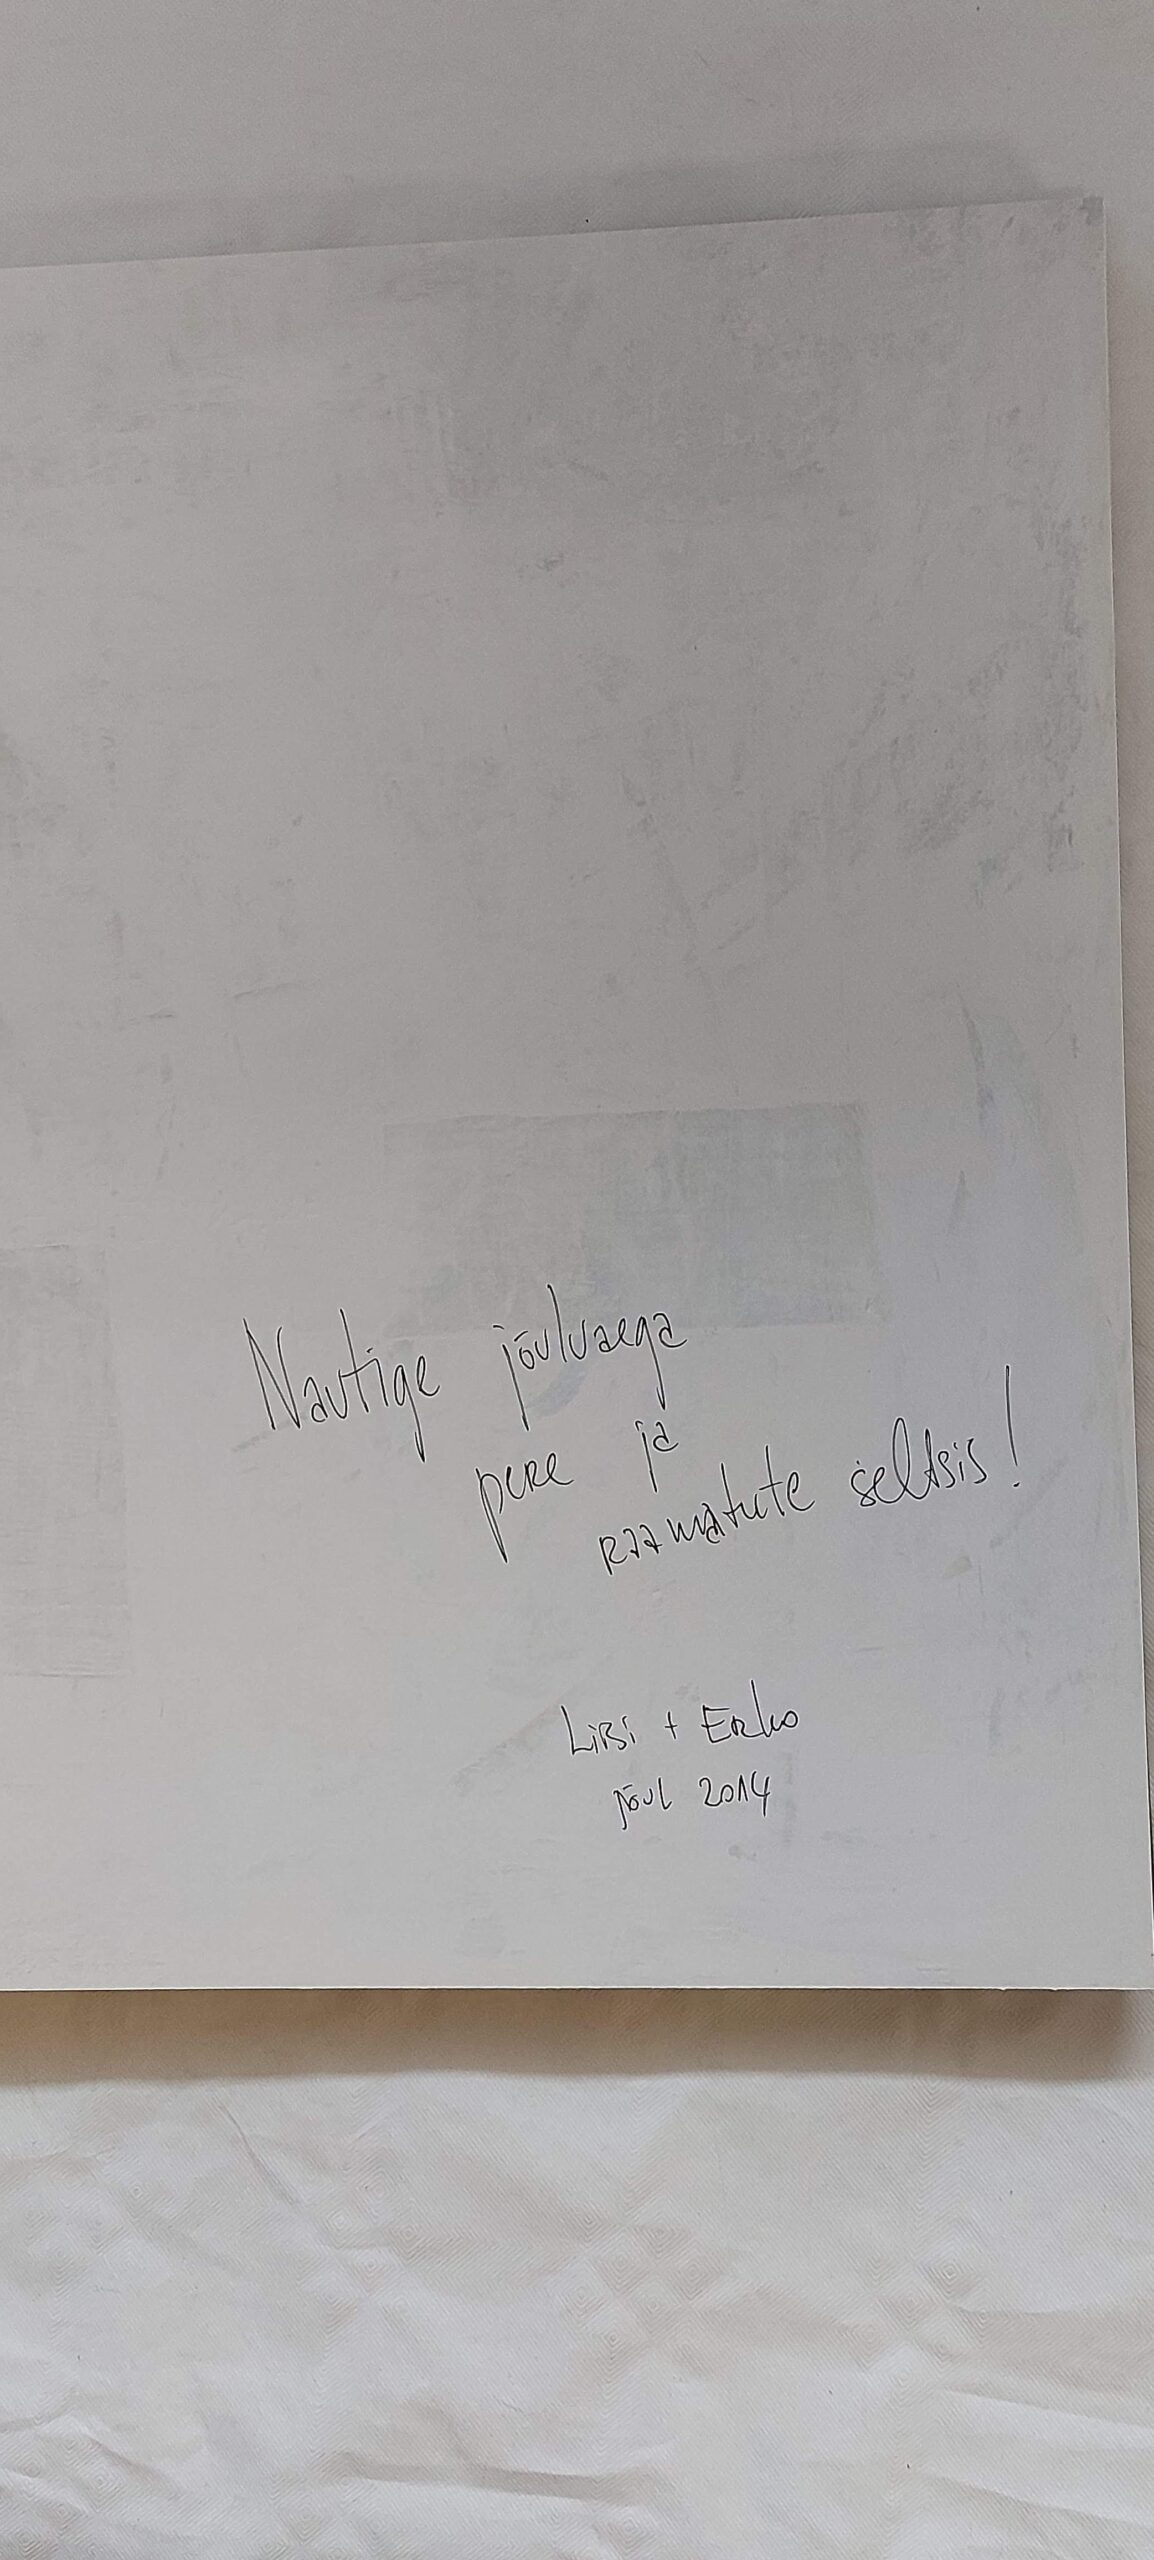 Nautige jõuluaega
pere ja
raamatute seltsis!
Liisi + Erko
jõul 2014